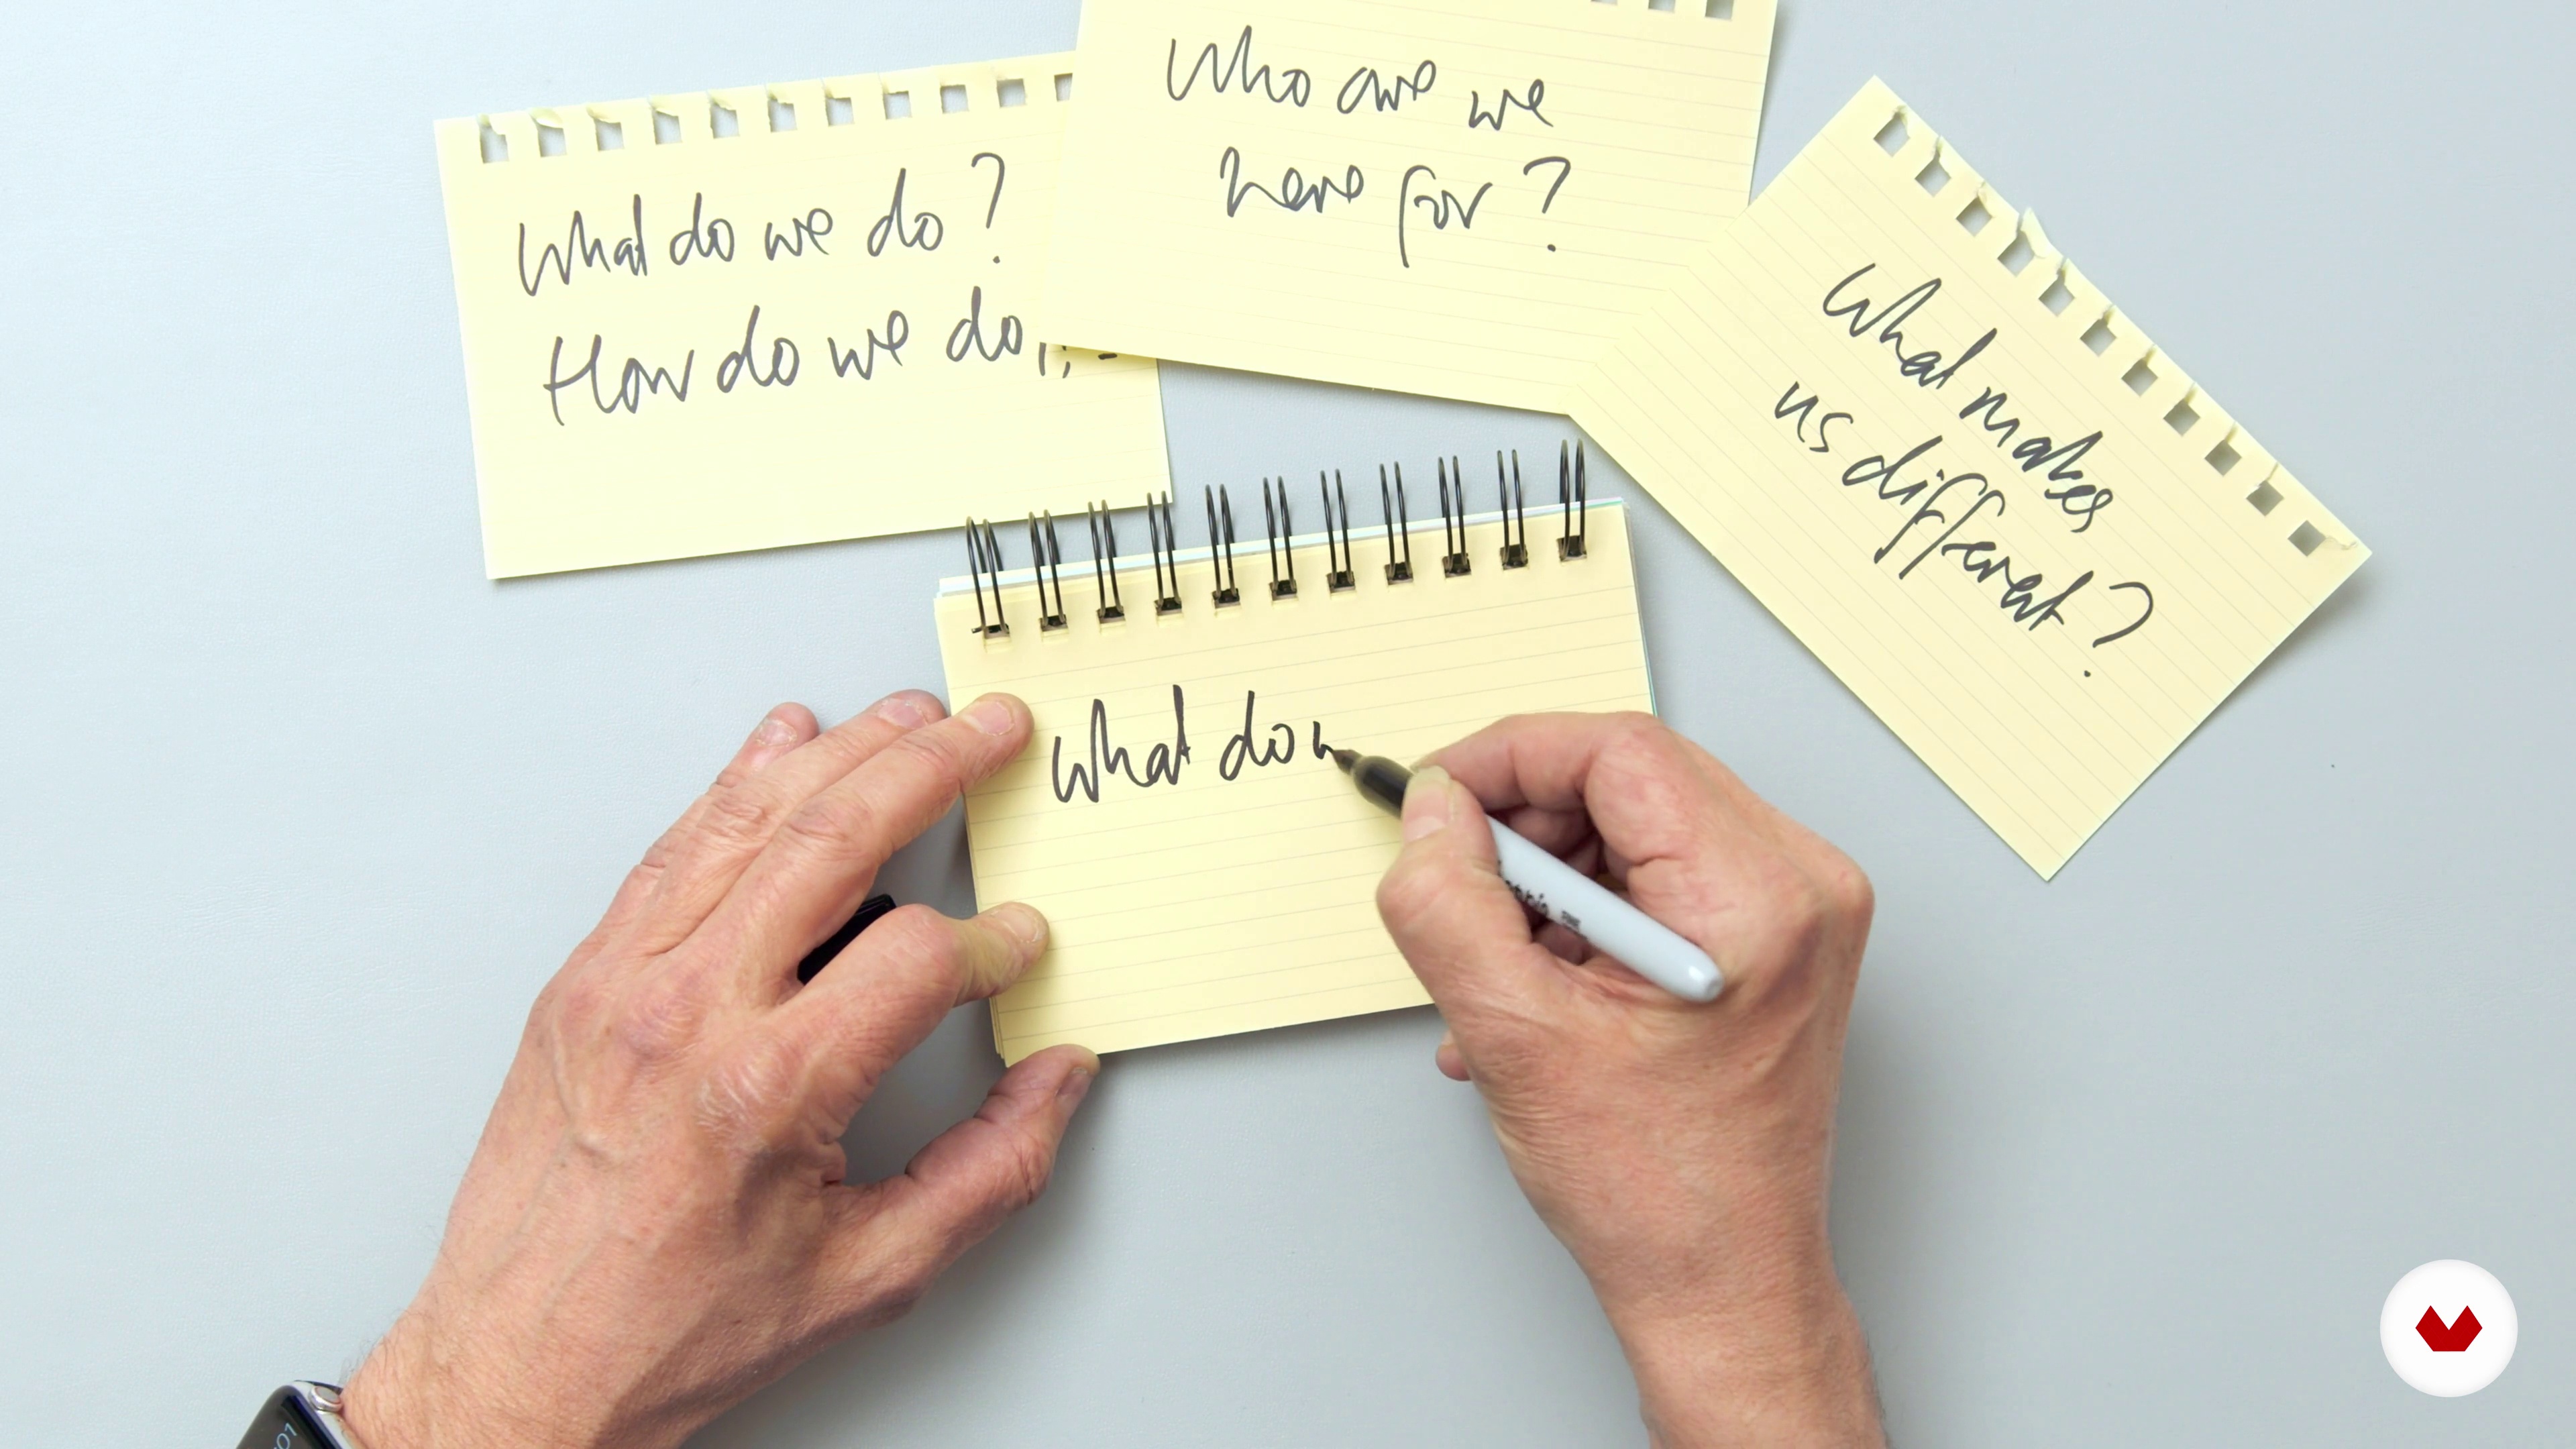 What do we do?
How do we do
Who are we
here for?
What makes
us different?
What do
01